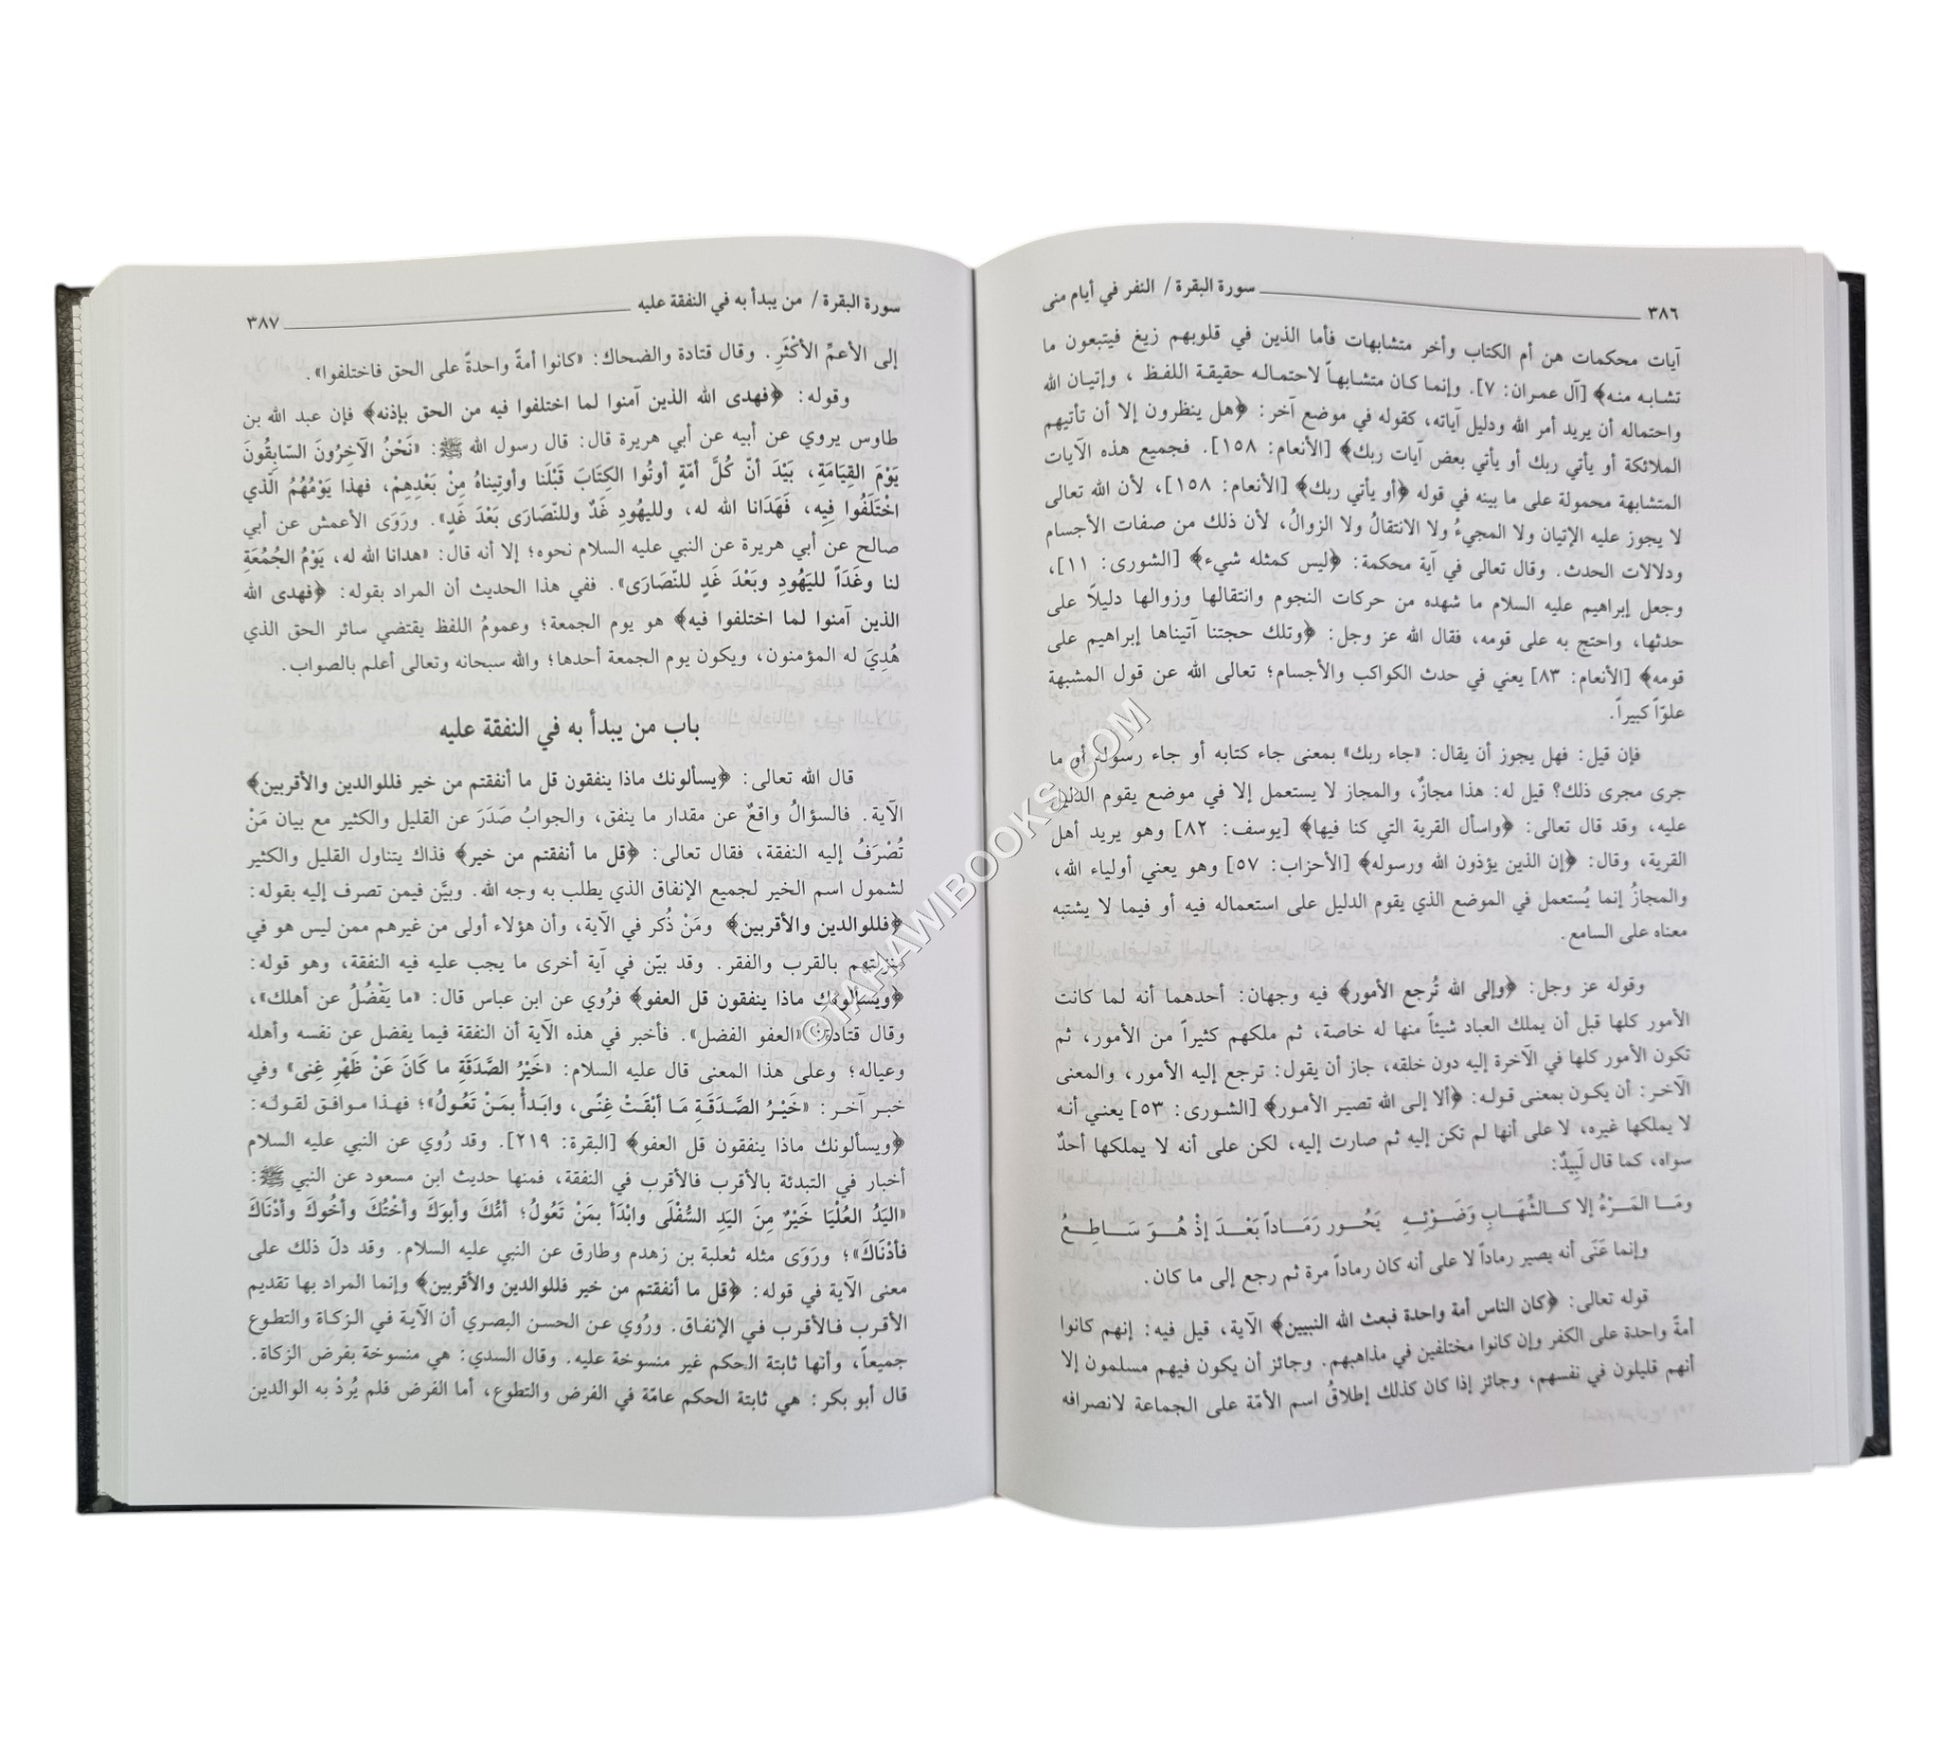 ٣٨٦ سورة البقرة / النفر في أيام منى
آيات محكمات هن أم الكتاب وأخر متشابهات فأما الذين في قلوبهم زيغ فيتبعون ما
تشابه منه﴾ [آل عمران: ٧]. وإنما كان متشابهاً لاحتماله حقيقة اللفظ ، وإتيان الله
واحتماله أن يريد أمر الله ودليل آياته، كقوله في موضع آخر: ﴿هل ينظرون إلا أن تأتيهم
الملائكة أو يأتي ربك أو يأتي بعض آيات ربك﴾ [الأنعام: ١٥٨]. فجميع هذه الآيات
المتشابهة محمولة على ما بينه في قوله ﴿أو يأتي ربك﴾ [الأنعام: ١٥٨]، لأن الله تعالى
لا يجوز عليه الإتيان ولا المجيءُ ولا الانتقالُ ولا الزوالُ، لأن ذلك من صفات الأجسام
ودلالات الحدث. وقال تعالى في آية محكمة: ﴿ليس كمثله شيء﴾ [الشورى: ١١]،
وجعل إبراهيم عليه السلام ما شهده من حركات النجوم وانتقالها وزوالها دليلاً على
حدثها، واحتج به على قومه، فقال الله عز وجل: ﴿وتلك حجتنا آتيناها إبراهيم على
قومه﴾ [الأنعام: ٨٣] يعني في حدث الكواكب والأجسام؛ تعالى الله عن قول المشبهة
علوّاً كبيراً.
فإن قيل: فهل يجوز أن يقال: «جاء ربك» بمعنى جاء كتابه أو جاء رسوله أو ما
جرى مجرى ذلك؟ قيل له: هذا مجازٌ، والمجاز لا يستعمل إلا في موضع يقوم الدليل
عليه، وقد قال تعالى: ﴿واسأل القرية التي كنا فيها﴾ [يوسف: ٨٢] وهو يريد أهل
القرية، وقال: ﴿إن الذين يؤذون الله ورسوله﴾ [الأحزاب: ٥٧] وهو يعني أولياء الله،
والمجازُ إنما يُستعمل في الموضع الذي يقوم الدليل على استعماله فيه أو فيما لا يشتبه
معناه على السامع.
وقوله عز وجل: ﴿وإلى الله تُرجع الأمور﴾ فيه وجهان: أحدهما أنه لما كانت
الأمور كلها قبل أن يملك العباد شيئاً منها له خاصة، ثم ملكهم كثيراً من الأمور، ثم
تكون الأمور كلها في الآخرة إليه دون خلقه، جاز أن يقول: ترجع إليه الأمور، والمعنى
الآخر: أن يكون بمعنى قوله: ﴿ألا إلى الله تصير الأمور﴾ [الشورى: ٥٣] يعني أنه
لا يملكها غيره، لا على أنها لم تكن إليه ثم صارت إليه، لكن على أنه لا يملكها أحدٌ
سواه، كما قال لَبِيدٌ:
ومَا المَرْءُ إلا كالشِّهَابِ وَضَوْئِهِ يَحُور رَمَاداً بَعْدَ إذْ هُوَ سَاطِعُ
وإنما عَنَى أنه يصير رماداً لا على أنه كان رماداً مرة ثم رجع إلى ما كان.
قوله تعالى: ﴿كان الناس أمة واحدة فبعث الله النبيين﴾ الآية، قيل فيه: إنهم كانوا
أمةً واحدة على الكفر وإن كانوا مختلفين في مذاهبهم. وجائز أن يكون فيهم مسلمون إلا
أنهم قليلون في نفسهم، وجائز إذا كان كذلك إطلاقُ اسم الأمّة على الجماعة لانصرافه
سورة البقرة / من يبدأ به في النفقة عليه ٣٨٧
إلى الأعمِّ الأكْثَرِ. وقال قتادة والضحاك: «كانوا أمةً واحدةً على الحق فاختلفوا».
وقوله: ﴿فهدى الله الذين آمنوا لما اختلفوا فيه من الحق بإذنه﴾ فإن عبد الله بن
طاوس يروي عن أبيه عن أبي هريرة قال: قال رسول الله ﷺ: «نَحْنُ الآخِرُونَ السّابِقُونَ
يَوْمَ القِيَامَةِ، بَيْدَ أنّ كُلَّ أمّةٍ أوتُوا الكِتَابَ قَبْلَنا وأوتِيناهُ مِنْ بَعْدِهِمْ، فهذا يَوْمُهُمُ الّذي
اخْتَلَفُوا فِيه، فَهَدَانا الله له، ولليهُودِ غَدٌ وللنّصَارَى بَعْدَ غَدٍ». ورَوَى الأعمش عن أبي
صالح عن أبي هريرة عن النبي عليه السلام نحوه؛ إلا أنه قال: «هدانا الله له، يَوْمُ الجُمُعَةِ
لنا وغَدَاً لليَهُودِ وبَعْدَ غَدٍ للنّصَارَى». ففي هذا الحديث أن المراد بقوله: ﴿فهدى الله
الذين آمنوا لما اختلفوا فيه﴾ هو يوم الجمعة؛ وعمومُ اللفظ يقتضي سائر الحق الذي
هُدِيَ له المؤمنون، ويكون يوم الجمعة أحدها؛ والله سبحانه وتعالى أعلم بالصواب.
باب من يبدأ به في النفقة عليه
قال الله تعالى: ﴿يسألونك ماذا ينفقون قل ما أنفقتم من خير فللوالدين والأقربين﴾
الآية. فالسؤالُ واقعٌ عن مقدار ما ينفق، والجوابُ صَدَرَ عن القليل والكثير مع بيان مَنْ
تُصْرَفُ إليه النفقة، فقال تعالى: ﴿قل ما أنفقتم من خير﴾ فذاك يتناول القليل والكثير
لشمول اسم الخير لجميع الإنفاق الذي يطلب به وجه الله. وبيَّن فيمن تصرف إليه بقوله:
﴿فللوالدين والأقربين﴾ ومَنْ ذُكر في الآية، وأن هؤلاء أولى من غيرهم ممن ليس هو في
منزلتهم بالقرب والفقر. وقد بيّن في آية أخرى ما يجب عليه فيه النفقة، وهو قوله:
﴿ويسألونك ماذا ينفقون قل العفو﴾ فرُوي عن ابن عباس قال: «ما يَفْضُلُ عن أهلك»،
وقال قتادة: «العفو الفضل». فأخبر في هذه الآية أن النفقة فيما يفضل عن نفسه وأهله
وعياله؛ وعلى هذا المعنى قال عليه السلام: «خَيْرُ الصَّدَقَةِ ما كَانَ عَنْ ظَهْرِ غِنى» وفي
خبر آخر: «خَيْرُ الصَّدَقَةِ مَا أبْقَتْ غِنًى، وابَدأْ بمَنْ تَعُولُ»؛ فهذا موافق لقوله:
﴿ويسألونك ماذا ينفقون قل العفو﴾ [البقرة: ٢١٩]. وقد رُوي عن النبي عليه السلام
أخبار في التبدئة بالأقرب فالأقرب في النفقة، فمنها حديث ابن مسعود عن النبي ﷺ:
«اليَدُ العُلْيَا خَيْرٌ مِنَ اليَدِ السُّفْلَى وابْدَأ بمَنْ تَعُولُ؛ أمُّكَ وأبوكَ وأخْتُكَ وأخُوكَ وأدْنَاكَ
فأدْنَاكَ»؛ ورَوَى مثله ثعلبة بن زهدم وطارق عن النبي عليه السلام. وقد دلّ ذلك على
معنى الآية في قوله: ﴿قل ما أنفقتم من خير فللوالدين والأقربين﴾ وإنما المراد بها تقديم
الأقرب فالأقرب في الإنفاق. ورُوي عن الحسن البصري أن الآية في الزكاة والتطوع
جميعاً، وأنها ثابتة الحكم غير منسوخة عليه. وقال السدي: هي منسوخة بفرض الزكاة.
قال أبو بكر: هي ثابتة الحكم عامّة في الفرض والتطوع، أما الفرض فلم يُردْ به الوالدين
©TAHAWIBOOKS.COM